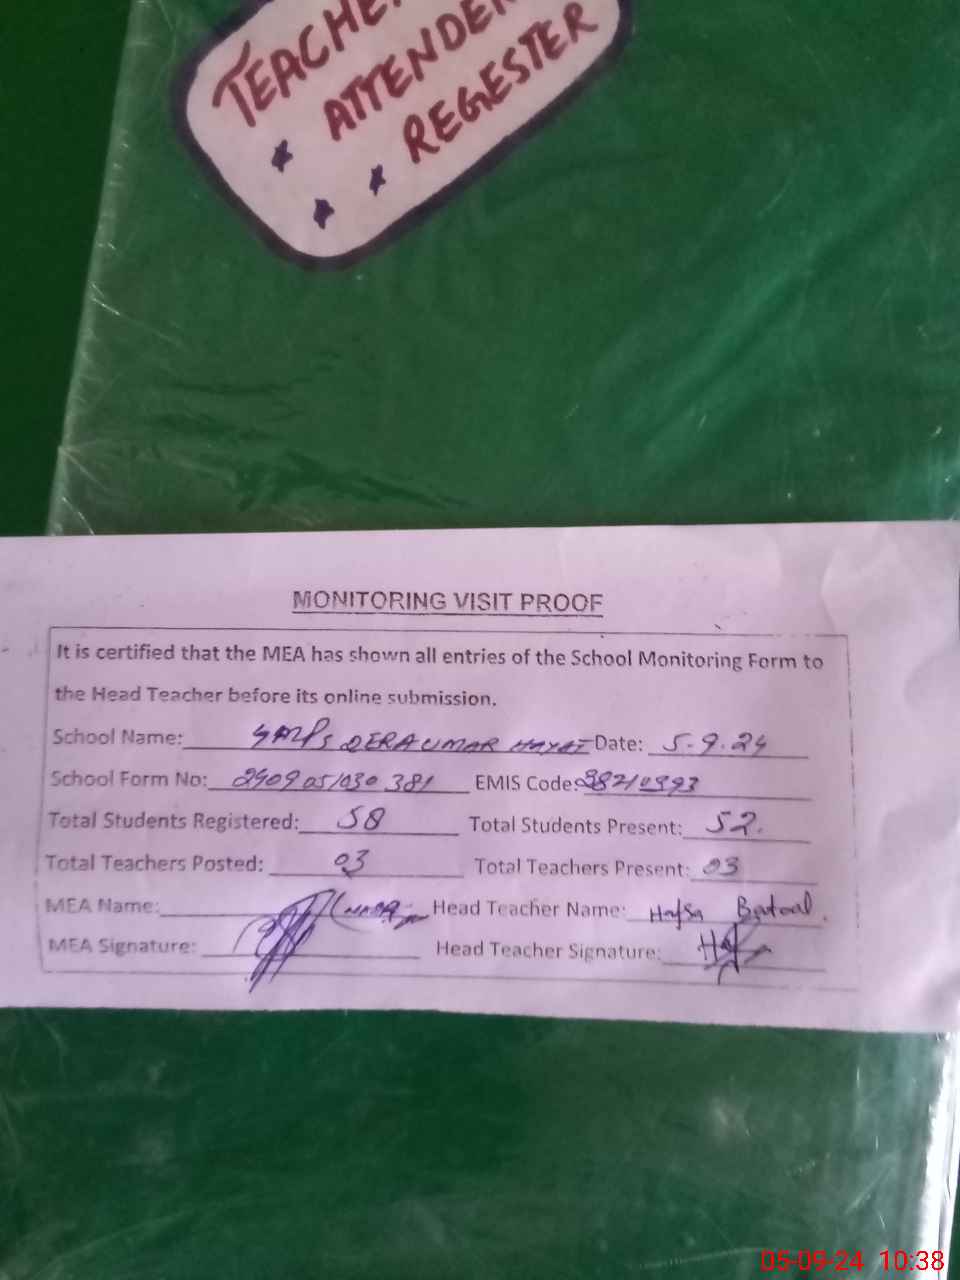 TEACHE
ATTENDE
REGESTER
MONITORING VISIT PROOF
It is certified that the MEA has shown all entries of the School Monitoring Form to
the Head Teacher before its online submission.
School Name: GMPS DERA UMAR HAYAT Date: 5-9-24
School Form No: 240905/030381 EMIS Code:
Total Students Registered: 58 Total Students Present: 52.
Total Teachers Posted: 03 Total Teachers Present: 03
MEA Name: Head Teacher Name: Hafsa Batool.
MEA Signature: Head Teacher Signature:
05-09-24 10:38